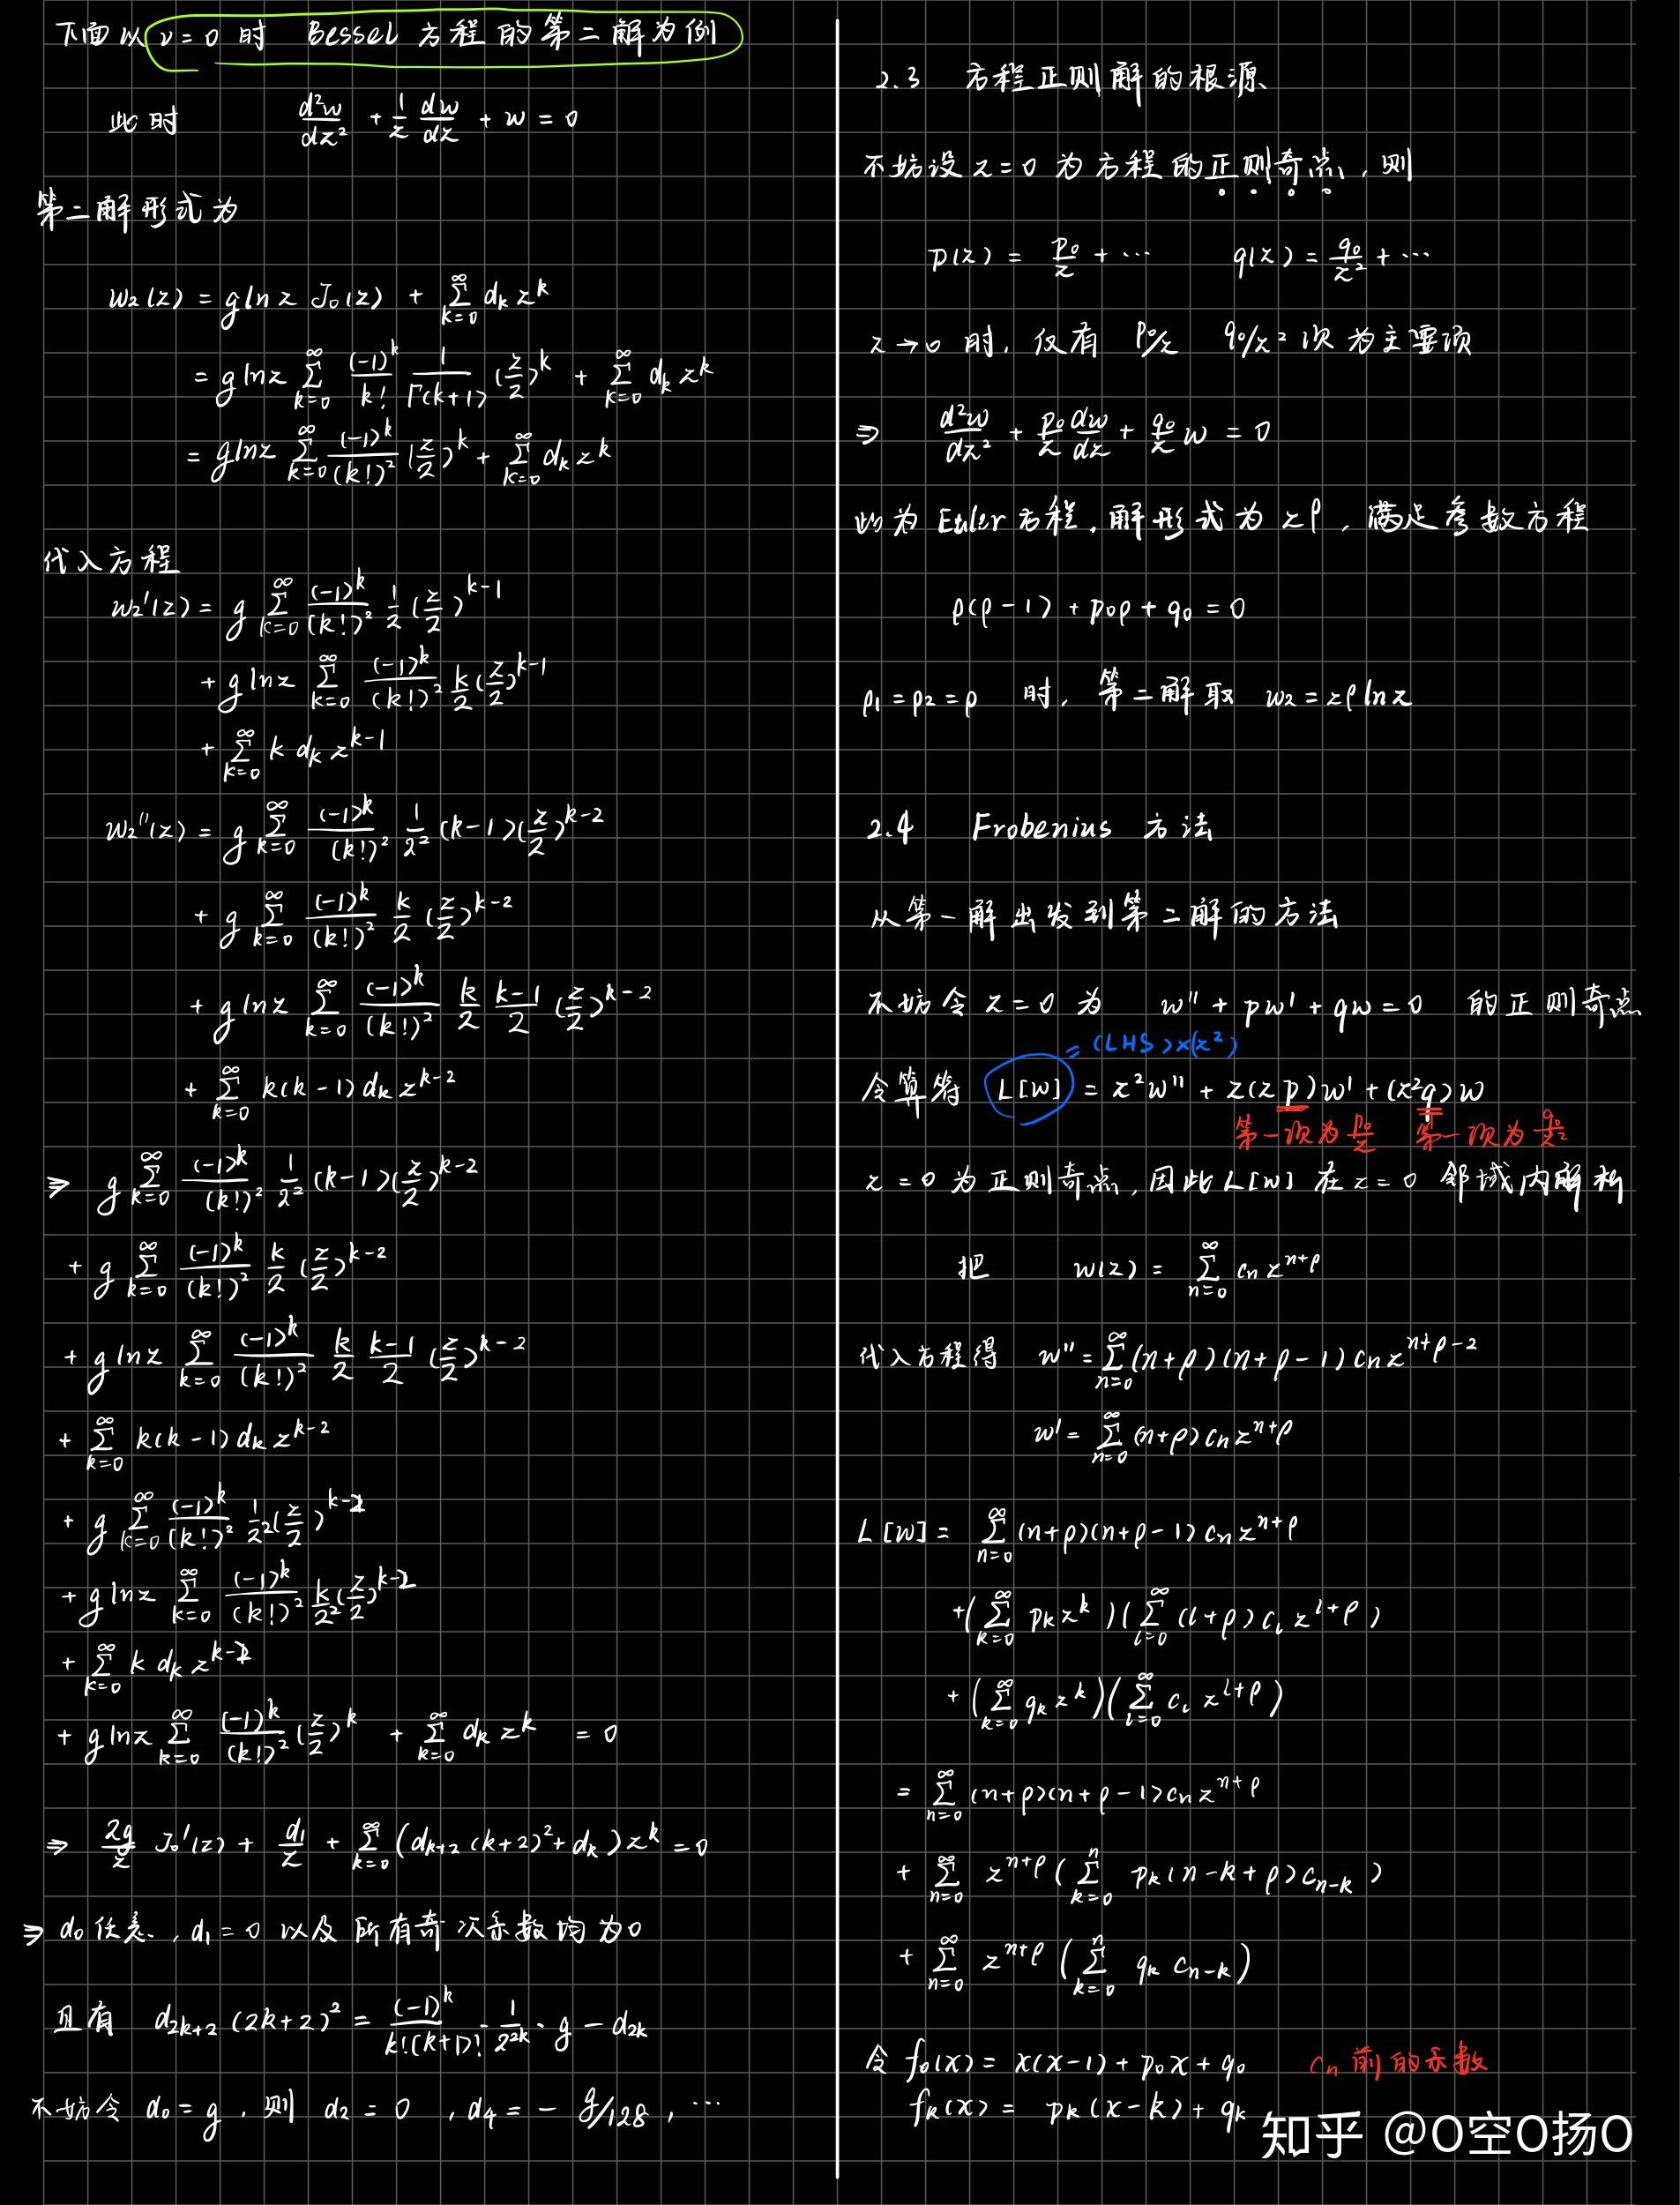 下面以 ν=0 时 Bessel 方程的第二解为例
此时 d²w/dz² + 1/z dw/dz + w = 0
第二解形式为
w₂(z) = g ln z J₀(z) + ∑_{k=0}^∞ d_k z^k
= g ln z ∑_{k=0}^∞ (-1)^k/k! 1/Γ(k+1) (z/2)^k + ∑_{k=0}^∞ d_k z^k
= g ln z ∑_{k=0}^∞ (-1)^k/(k!)² (z/2)^k + ∑_{k=0}^∞ d_k z^k
代入方程
w₂'(z) = g ∑_{k=0}^∞ (-1)^k/(k!)² 1/2 (z/2)^{k-1}
+ g ln z ∑_{k=0}^∞ (-1)^k/(k!)² k/2 (z/2)^{k-1}
+ ∑_{k=0}^∞ k d_k z^{k-1}
w₂''(z) = g ∑_{k=0}^∞ (-1)^k/(k!)² 1/2² (k-1)(z/2)^{k-2}
+ g ∑_{k=0}^∞ (-1)^k/(k!)² k/2 (z/2)^{k-2}
+ g ln z ∑_{k=0}^∞ (-1)^k/(k!)² k/2 (k-1)/2 (z/2)^{k-2}
+ ∑_{k=0}^∞ k(k-1) d_k z^{k-2}
⇒ g ∑_{k=0}^∞ (-1)^k/(k!)² 1/2² (k-1)(z/2)^{k-2}
+ g ∑_{k=0}^∞ (-1)^k/(k!)² k/2 (z/2)^{k-2}
+ g ln z ∑_{k=0}^∞ (-1)^k/(k!)² k/2 (k-1)/2 (z/2)^{k-2}
+ ∑_{k=0}^∞ k(k-1) d_k z^{k-2}
+ g ∑_{k=0}^∞ (-1)^k/(k!)² 1/2² (z/2)^{k-2}
+ g ln z ∑_{k=0}^∞ (-1)^k/(k!)² k/2² (z/2)^{k-2}
+ ∑_{k=0}^∞ k d_k z^{k-2}
+ g ln z ∑_{k=0}^∞ (-1)^k/(k!)² (z/2)^k + ∑_{k=0}^∞ d_k z^k = 0
⇒ 2g/z J₀'(z) + d₁/z + ∑_{k=0}^∞ (d_{k+2}(k+2)² + d_k) z^k = 0
⇒ d₀ 任意, d₁=0 以及所有奇次系数均为0
且有 d_{2k+2} (2k+2)² = (-1)^k/k!(k+1)! · 1/2^{2k} · g - d_{2k}
不妨令 d₀ = g, 则 d₂ = 0, d₄ = - g/128, ⋯
2.3 方程正则解的根源
不妨设 z=0 为方程的正则奇点, 则
p(z) = p₀/z + ⋯ q(z) = q₀/z² + ⋯
z→0 时, 仅有 p₀/z q₀/z² 项为主要项
⇒ d²w/dz² + p₀/z dw/dz + q₀/z w = 0
此为 Euler 方程, 解形式为 z^ρ, 满足参数方程
ρ(ρ-1) + p₀ρ + q₀ = 0
ρ₁=ρ₂=ρ 时, 第二解取 w₂ = z^ρ ln z
2.4 Frobenius 方法
从第一解出发到第二解的方法
不妨令 z=0 为 w'' + pw' + qw = 0 的正则奇点
= (LHS)×(z²)
令算符 L[w] = z²w'' + z(zp)w' + (z²q)w
第一项为 p₀/z 第一项为 q₀/z²
z=0 为正则奇点, 因此 L[w] 在 z=0 邻域内解析
把 w(z) = ∑_{n=0}^∞ c_n z^{n+ρ}
代入方程得 w'' = ∑_{n=0}^∞ (n+ρ)(n+ρ-1) c_n z^{n+ρ-2}
w' = ∑_{n=0}^∞ (n+ρ) c_n z^{n+ρ}
L[w] = ∑_{n=0}^∞ (n+ρ)(n+ρ-1) c_n z^{n+ρ}
+ (∑_{k=0}^∞ p_k z^k)(∑_{l=0}^∞ (l+ρ) c_l z^{l+ρ})
+ (∑_{k=0}^∞ q_k z^k)(∑_{l=0}^∞ c_l z^{l+ρ})
= ∑_{n=0}^∞ (n+ρ)(n+ρ-1) c_n z^{n+ρ}
+ ∑_{n=0}^∞ z^{n+ρ} (∑_{k=0}^n p_k (n-k+ρ) c_{n-k})
+ ∑_{n=0}^∞ z^{n+ρ} (∑_{k=0}^n q_k c_{n-k})
令 f₀(x) = x(x-1) + p₀x + q₀ c_n 前的系数
f_k(x) = p_k(x-k) + q_k
知乎 @O空O扬O